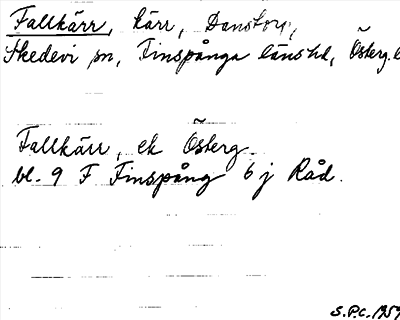 Fallkärr, kärr, Danstorp,
Skedevi sn, Finspånga länshd, Österg. l
Fallkärr, ek Österg.
bl. 9 F Finspång 6 j Råd.
S.P.C. 1959